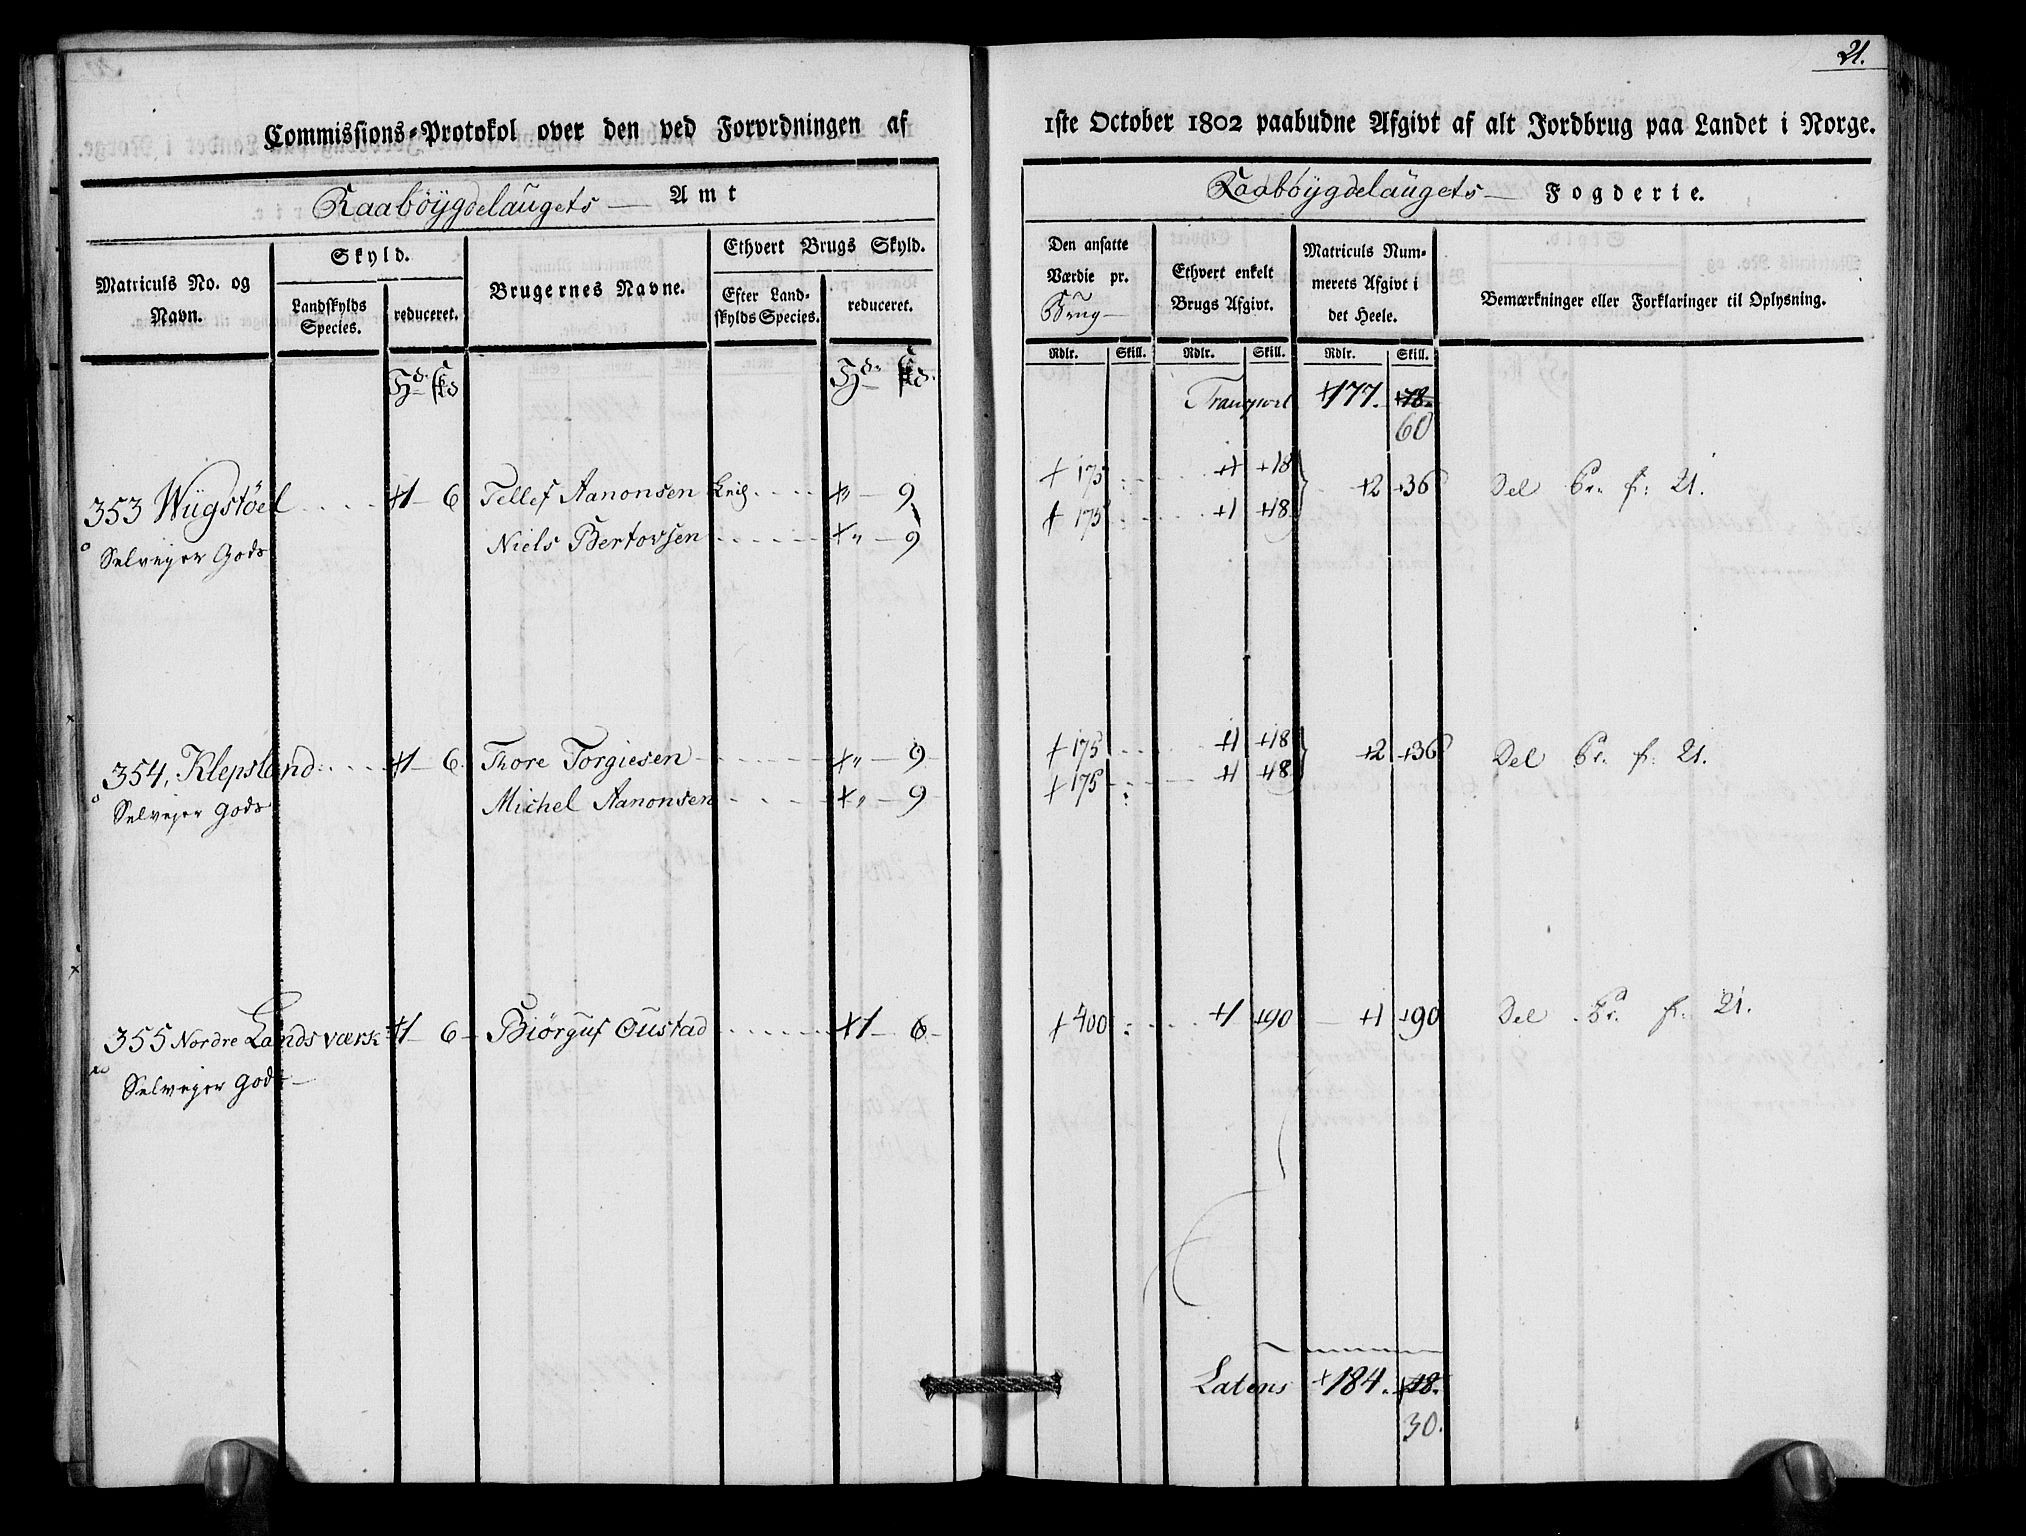 21.
Commissions-Protokol over den ved Forordningen af 1ste October 1802 paabudne Afgivt af alt Jordbrug paa Landet i Norge.
Raabÿgdelaugets — Amt
Raabÿgdelaugets — Fogderie.
Matriculs No. og Navn.
Skyld.
Landskylds Species.
reduceret.
Brugernes Navne.
Ethvert Brugs Skyld.
Efter Landskylds Species.
reduceret.
Den ansatte Værdie pr. Brug
Ethvert enkelt Brugs Afgivt.
Matriculs Nummerets Afgivt i det Heele.
Bemærkninger eller Forklaringer til Oplysning.
Rdlr. Skill. Rdlr. Skill. Rdlr. Skill.
Hd. skd Hd. skd.
Transport +177. +18.
60
353 Wügstöel +1 – 6 Tellef Aanonsen +" – 9 + 175 +1 +18 +2 +36 Del Br. f: 21.
Selvejer Gods Niels Bertovsen +" – 9 + 175 +1 +18
354, Klepsland +1 – 6 Thore Torgiesen +" – 9 + 175 +1 +18 +2 +36 Del Br. f: 21.
Selvejer Gods Michel Aanonsen +" – 9 + 175 +1 +18
355 Nordre Landsværk +1 – 6 Biörguf Oustad +1 – 6 + 400 +1 +90 +1 +90 Del Br. f: 21.
Selvejer Gods
Latens +184. +18.
30.